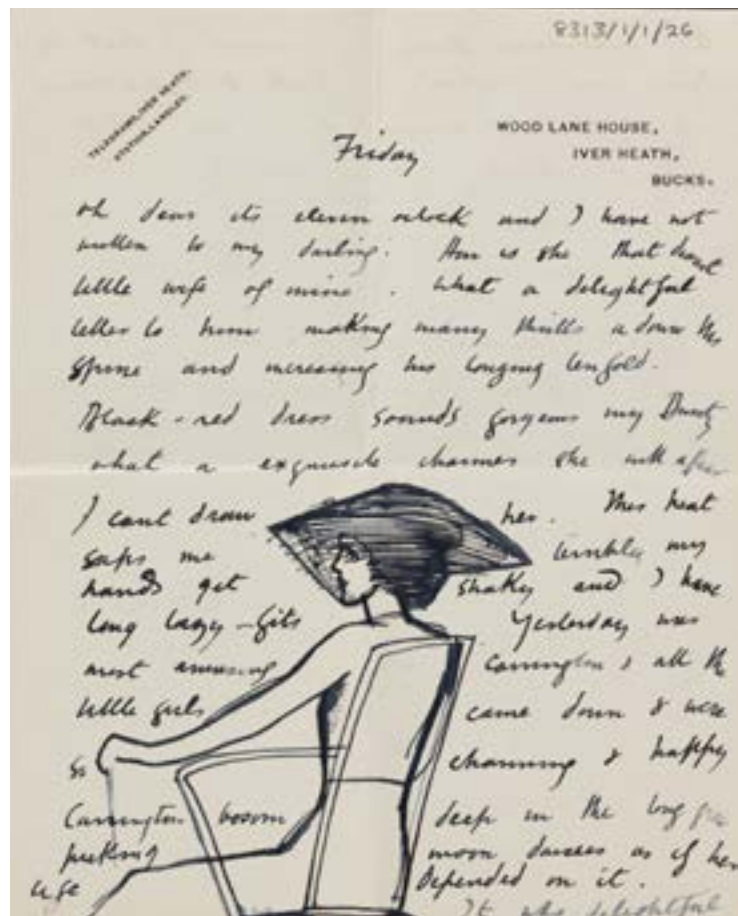 8313/1/1/26
TELEGRAMS, IVER HEATH.
STATION, LANGLEY.
WOOD LANE HOUSE,
IVER HEATH,
BUCKS.
Friday
oh dear its eleven oclock and I have not
written to my darling. How is she that dearest
little wife of mine. What a delightful
letter to him making many thrills adown his
spine and increasing his longing tenfold.
Black - red dress sounds gorgeous my
what a exquisite charmer she will
I cant draw her. This heat
saps me terribly my
hands get shaky and I have
long lazy-fits Yesterday was
most amusing Carrington & all the
little girls came down & were
so charming & happy
Carrington bosom deep in the long
picking moon daisies as if her
life depended on it.
It was delightful